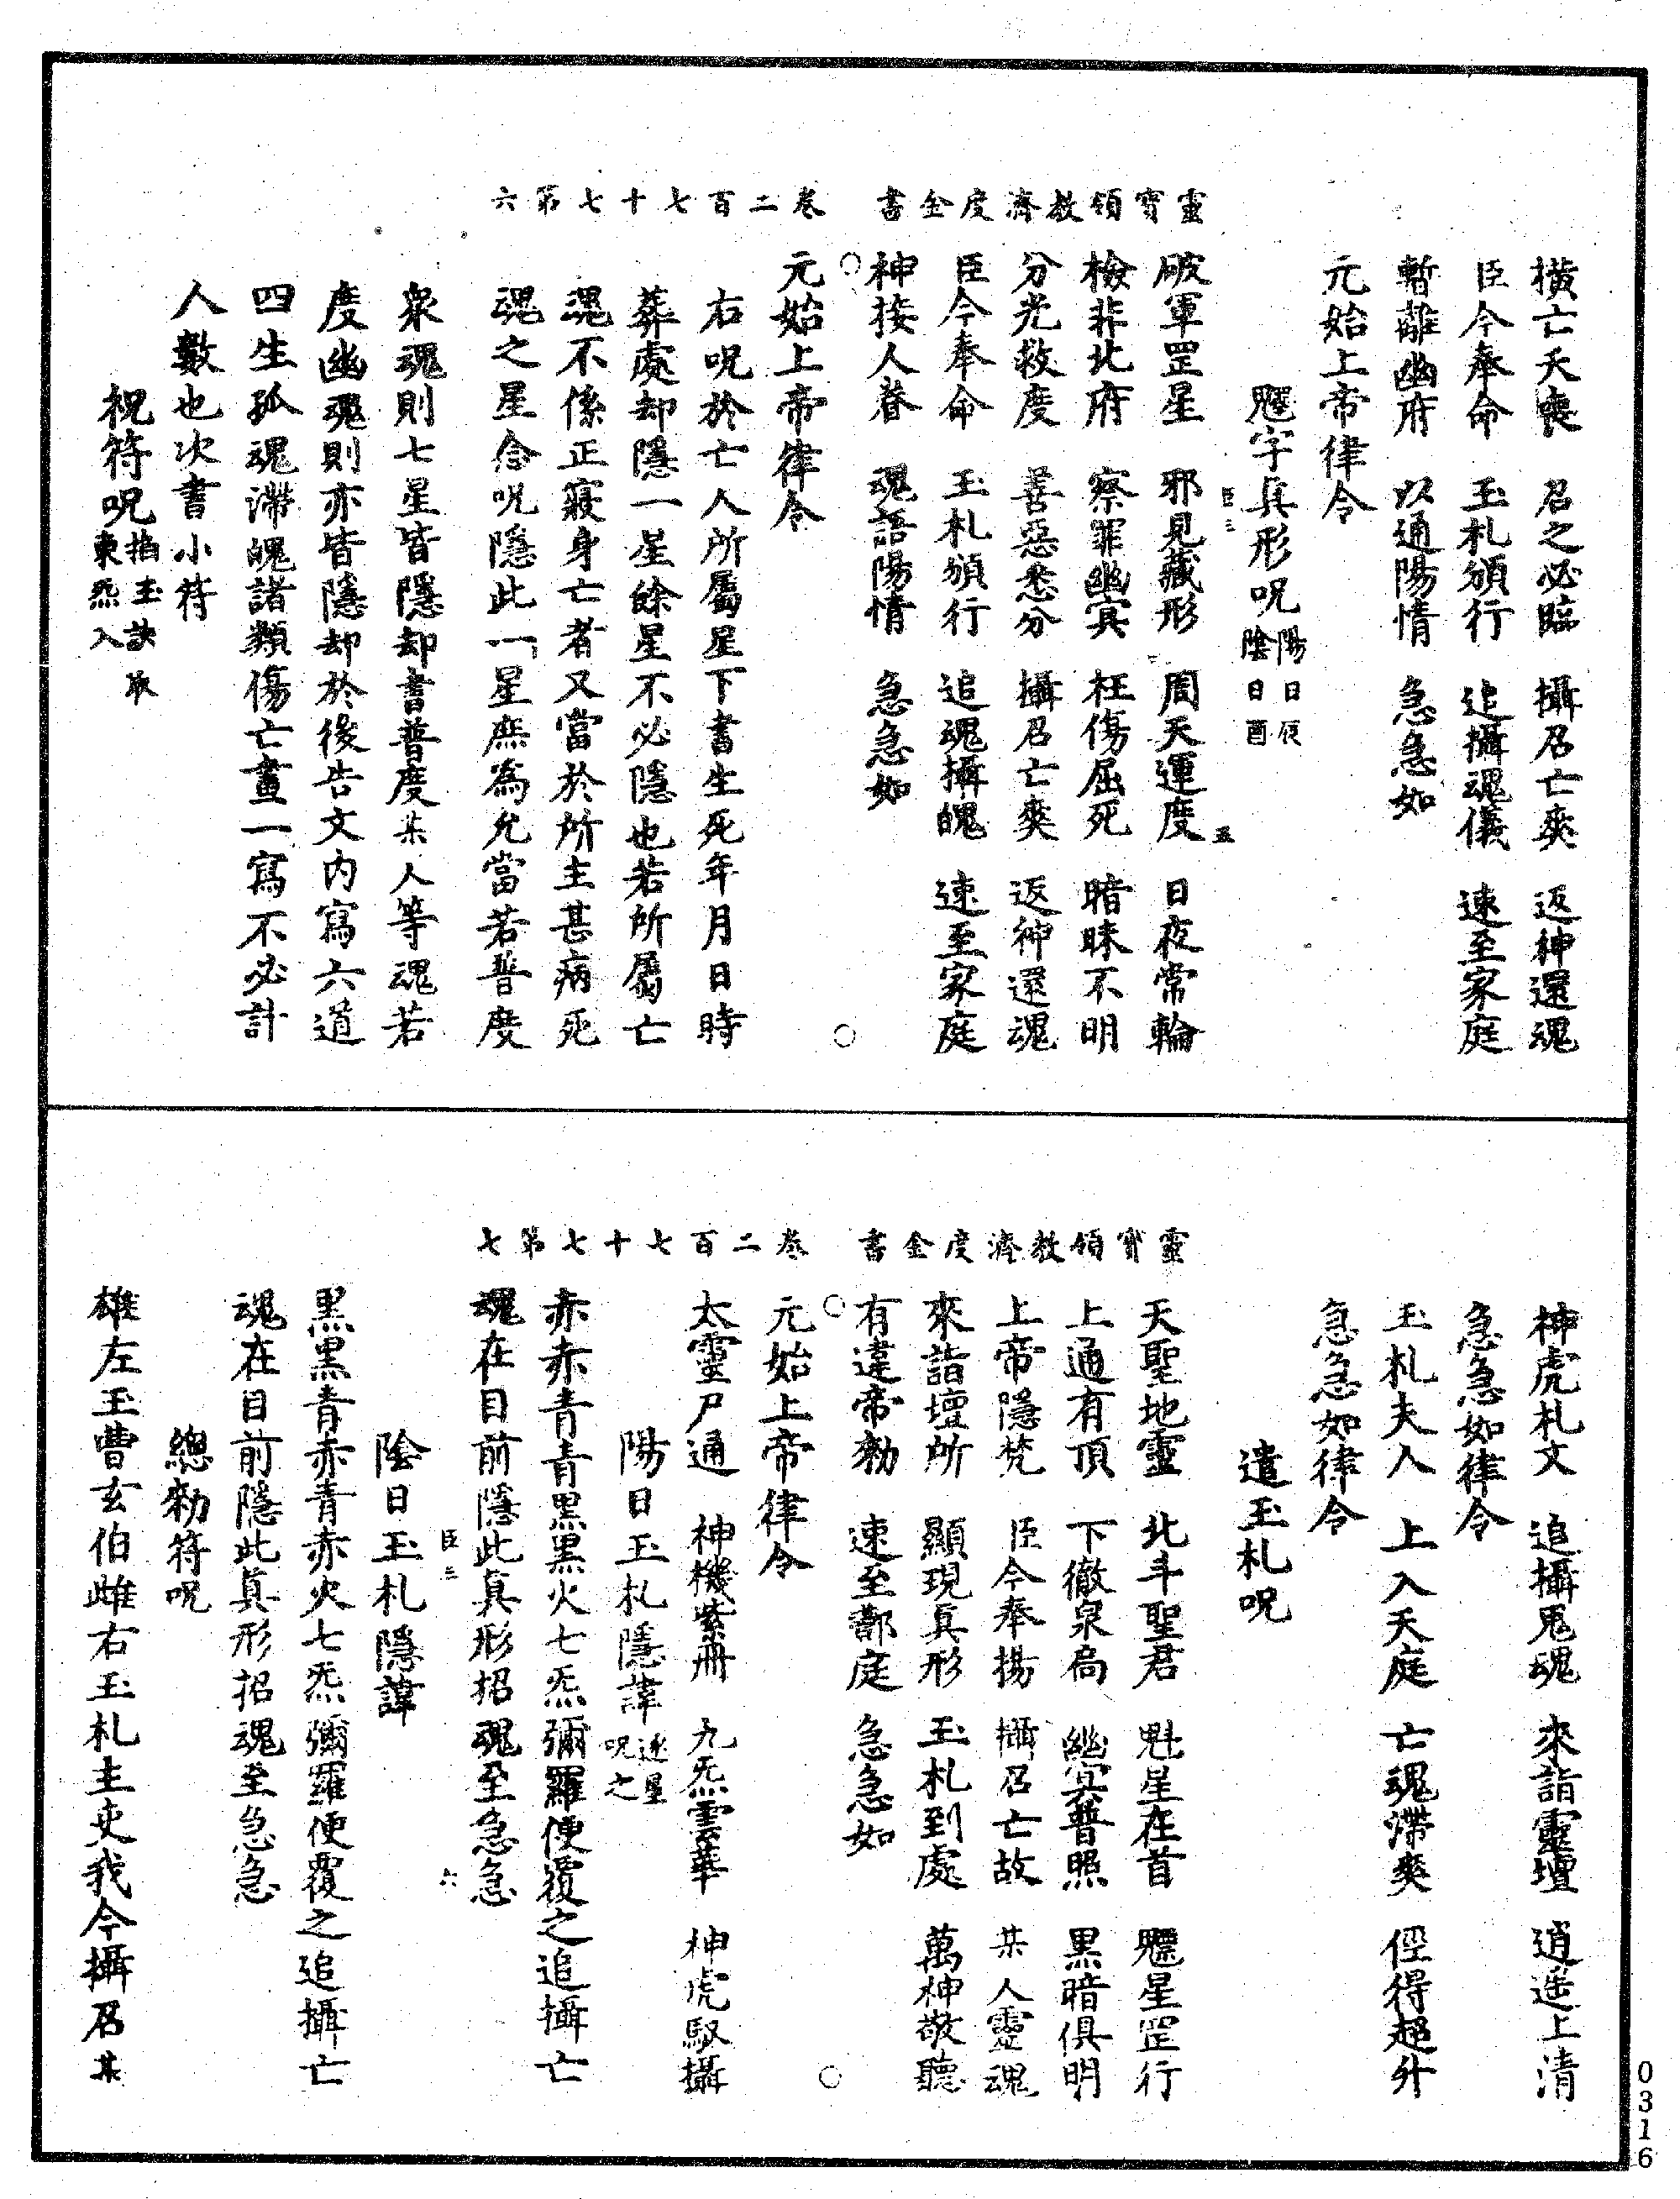 橫亡夭喪　召之必臨　攝召亡爽　返神還魂
臣今奉命　玉札頒行　追攝魂儀　速至家庭
暫離幽府　以通陽情　急急如
元始上帝律令
字真形呪陽日辰陰日酉
臣三　五
破軍罡星　邪見藏形　周天運度　日夜常輪
檢非北府　察罪幽冥　枉傷屈死　暗昧不明
分光救度　善惡悉分　攝召亡爽　返神還魂
臣今奉命　玉札頒行　追魂攝魄　速至家庭
神接人眷　魂語陽情　急急如
靈寶領教濟度金書　卷二百七十七第六
元始上帝律令
右呪於亡人所屬星下書生死年月日時
葬處却隱一星餘星不必隱也若所屬亡
魂不係正寢身亡者又當於所主甚病死
魂之星念呪隱此一星庶為允當若普度
衆魂則七星皆隱却書普度某人等魂若
度幽魂則亦皆隱却於後告文内寫六道
四生孤魂滯魄諸類傷亡畫一寫不必計
人數也次書小符
祝符呪掐玉訣取東炁入
神虎札文　追攝鬼魂　來詣靈壇　逍遥上清
急急如律令
玉札夫人　上入天庭　亡魂滯爽　俓得超升
急急如律令
遣玉札呪
天聖地靈　北斗聖君　魁星在首　星罡行
上通有頂　下徹泉扃　幽冥普照　黑暗俱明
上帝隱梵　臣今奉揚　攝召亡故　某人靈魂
來詣壇所　顯現真形　玉札到處　萬神敬聽
有違帝勑　速至酆庭　急急如
靈寶領教濟度金書　卷二百七十七第七
元始上帝律令
太靈尸通　神機紫冊　九炁雲華　神虎馭攝
陽日玉札隱諱逐星呪之
赤赤青青黑黑火七炁彌羅便覆之追攝亡
魂在目前隱此真形招魂至急急
臣三　六
陰日玉札隱諱
黑黑青赤青赤火七炁彌羅便覆之追攝亡
魂在目前隱此真形招魂至急急
總勑符呪
雄左玉曹玄伯雌右玉札主吏我今攝召某
0316